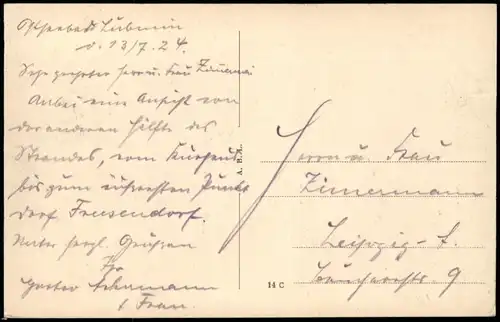 Ostseebad Lubmin
d. 13/7. 24.
Sehr geehrter Herr u. Frau Zimermann
Anbei eine Ansicht von
der anderen Hälfte des
Strandes, vom Kurhaus
bis zum äußersten Punkt
dorf Freesendorf.
Unter herzl. Grüßen
Ihr
Gustav Ackermann
u Frau.
A. R. A.
Herrn u. Frau
Zimermann
Leipzig - L.
9
14 C